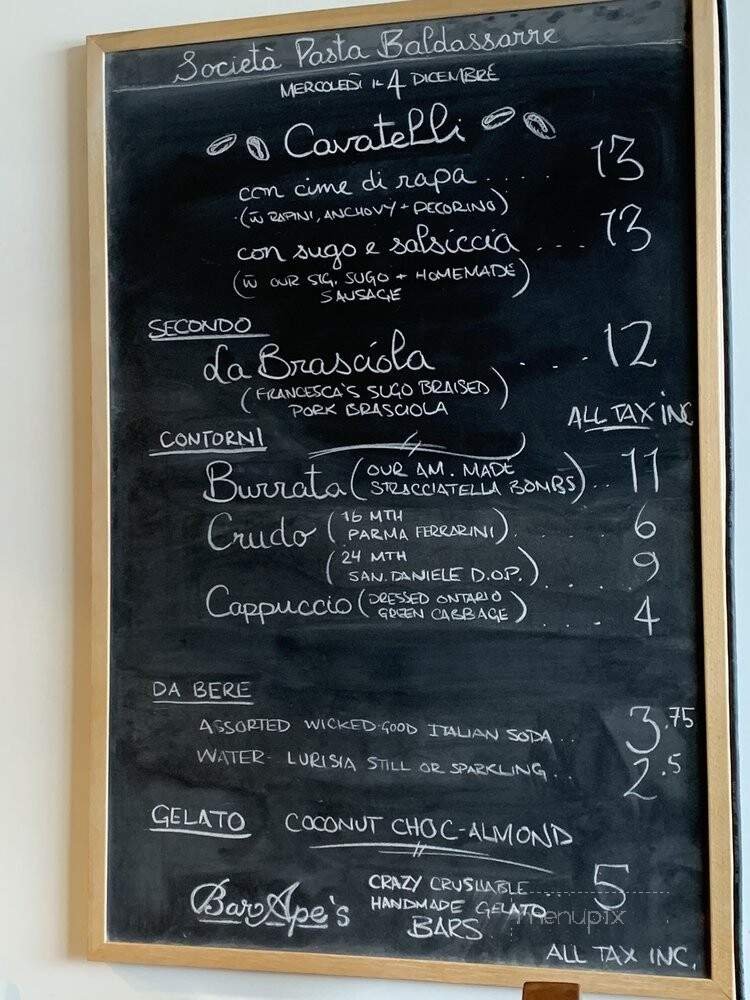 Società Pasta Baldassarre
MERCOLEDÌ IL 4 DICEMBRE
Cavatelli
con cime di rapa ..... 13
(w̄ RAPINI, ANCHOVY + PECORINO)
con sugo e salsiccia .... 13
(w̄ OUR SIG. SUGO + HOMEMADE
SAUSAGE)
SECONDO
La Brasciola .... 12
(FRANCESCA'S SUGO BRAISED
PORK BRASCIOLA)
ALL TAX INC
CONTORNI
Burrata (OUR AM. MADE
STRACCIATELLA BOMBS) .. 11
Crudo (16 MTH
PARMA FERRARINI) .... 6
(24 MTH
SAN. DANIELE D.O.P.) .... 9
Cappuccio (DRESSED ONTARIO
GREEN CABBAGE) .... 4
DA BERE
ASSORTED WICKED-GOOD ITALIAN SODA .. 3.75
WATER - LURISIA STILL OR SPARKLING ... 2.5
GELATO COCONUT CHOC-ALMOND
Bar Ape's CRAZY CRUSHABLE
HANDMADE GELATO
BARS 5
menupix
ALL TAX INC.